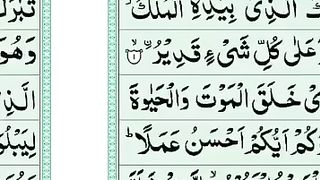 الَّذِیْ بِیَدِهِ الْمُلْكُ
عَلٰی كُلِّ شَیْءٍ قَدِیْرُۙ ۝۱
خَلَقَ الْمَوْتَ وَالْحَیٰوةَ
كُمْ اَیُّكُمْ اَحْسَنُ عَمَلًاؕ
تَبٰرَكَ
وَهُوَ
الَّذِیْ
لِیَبْلُوَ